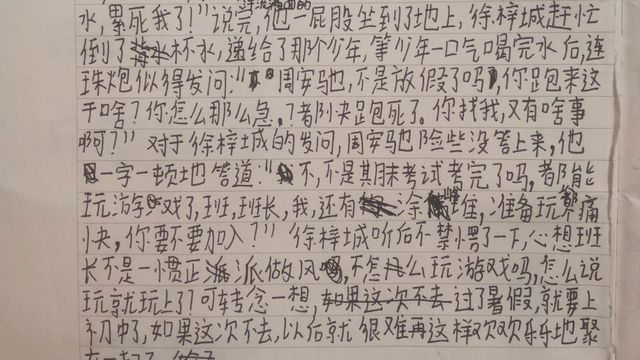 汗流浃面的
水，累死我了！”说完，他一屁股坐到了地上，徐梓城赶忙
倒了杯水，递给了那个少年，等少年一口气喝完水后，连
珠炮似得发问：“周宇驰，不是放假了吗，你跑来这
干啥？你怎么那么急，都快跑死了。你找我，又有啥事
啊？”对于徐梓城的发问，周宇驰险些没答上来，他
一字一顿地答道：“不，不是期末考试考完了吗，都能
玩游戏了，班，班长，我，还有涂峰维，准备玩个痛
快，你要不要加入？”徐梓城听后不禁愣了一下，心想班
长不是一惯正派做风，不怎么玩游戏吗，怎么说
玩就玩上了？可转念一想，过了暑假，就要上
初中了，如果这次不去，以后就很难再这样欢欢乐乐地聚
在一起了